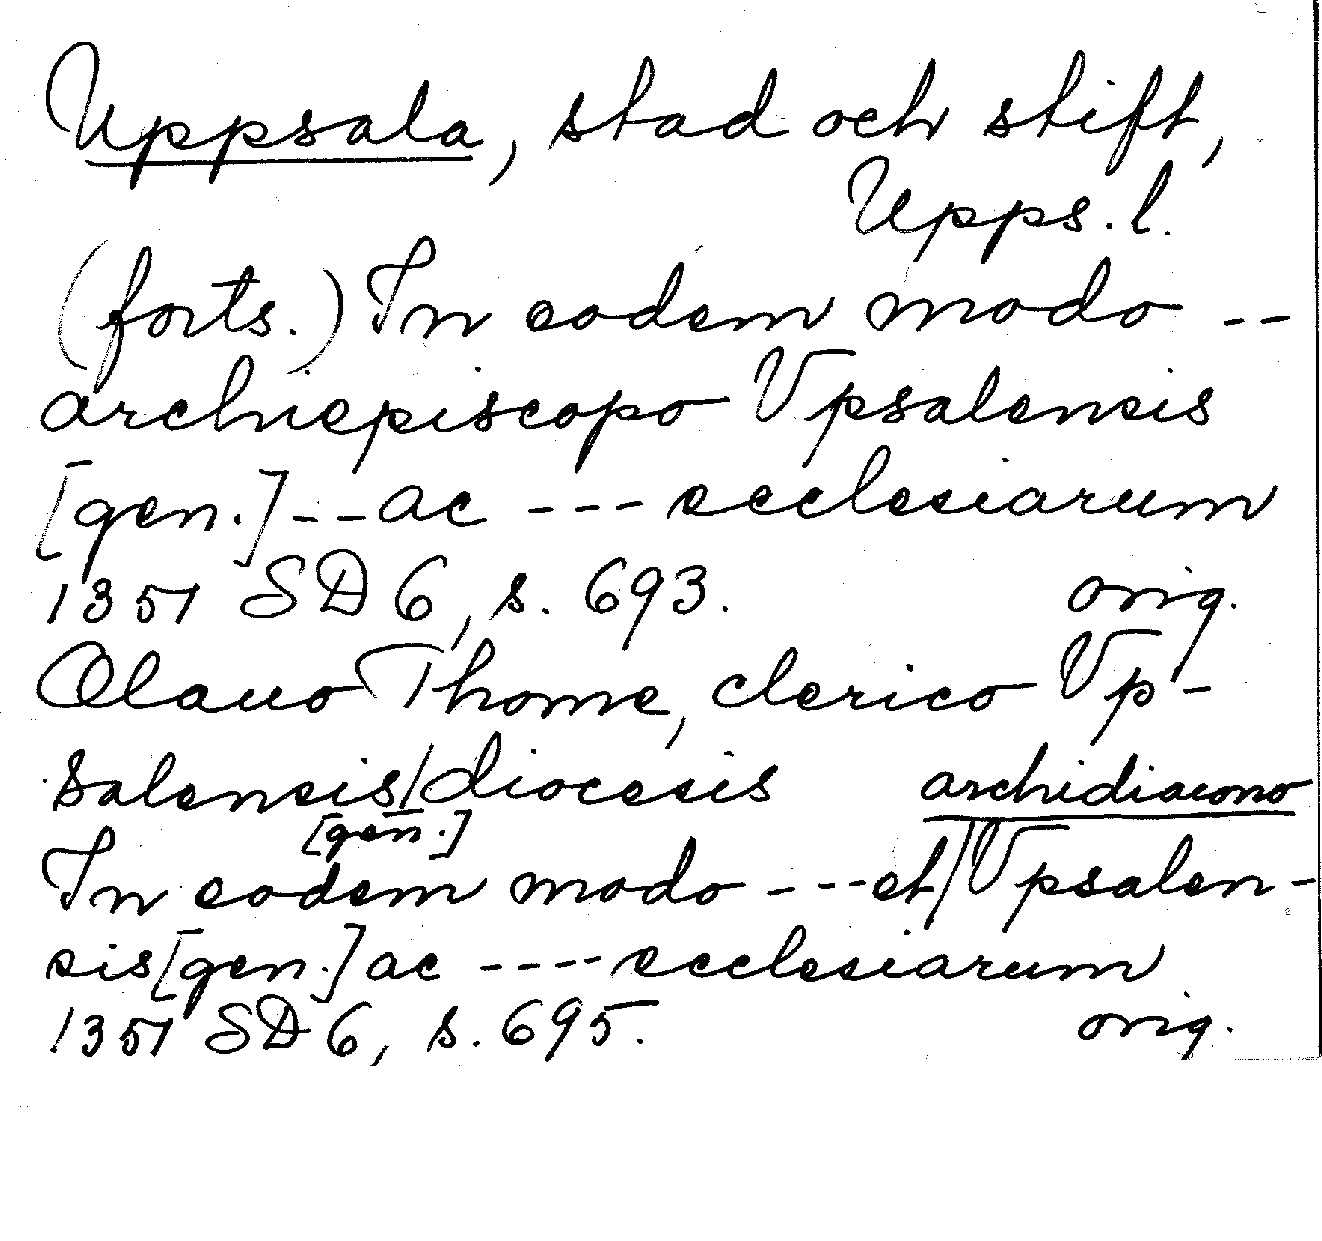 Uppsala, stad och stift,
Upps. l.
(forts.) In eodem modo --
archiepiscopo Vpsalensis
[gen.] -- ac --- ecclesiarum
1351 SD 6, s. 693. orig.
Olauo Thome, clerico Vp-
salensis/diocesis archidiacono
[gen.]
In eodem modo --- et/Vpsalen-
sis [gen.] ac ---- ecclesiarum
1351 SD 6, s. 695. orig.